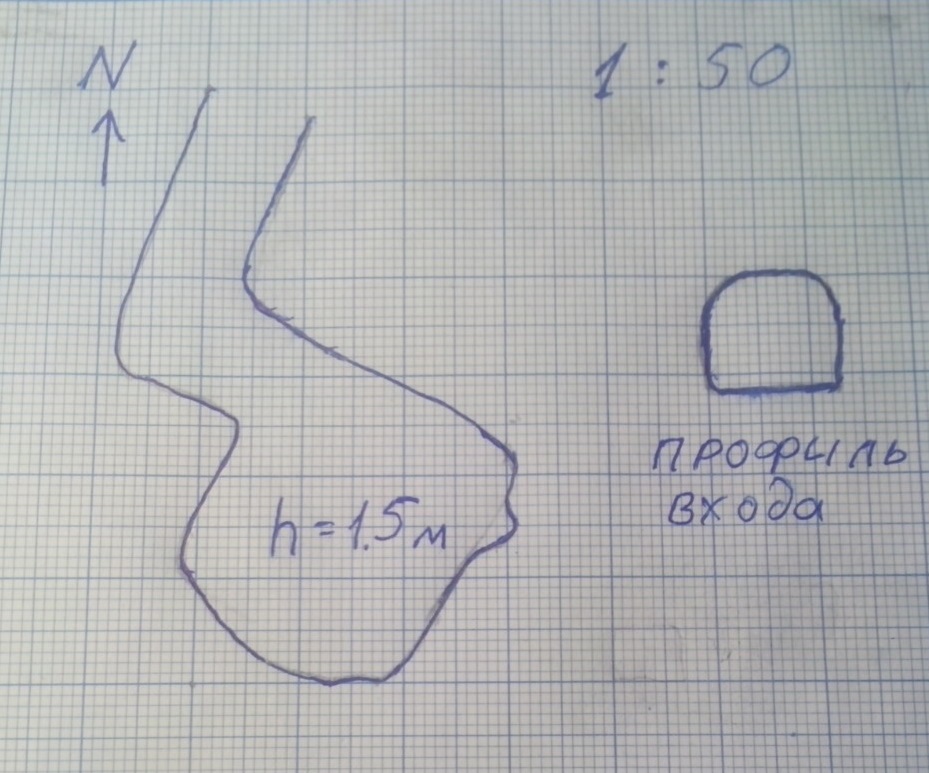 N
1 : 50
h = 1.5 м
профиль
входа